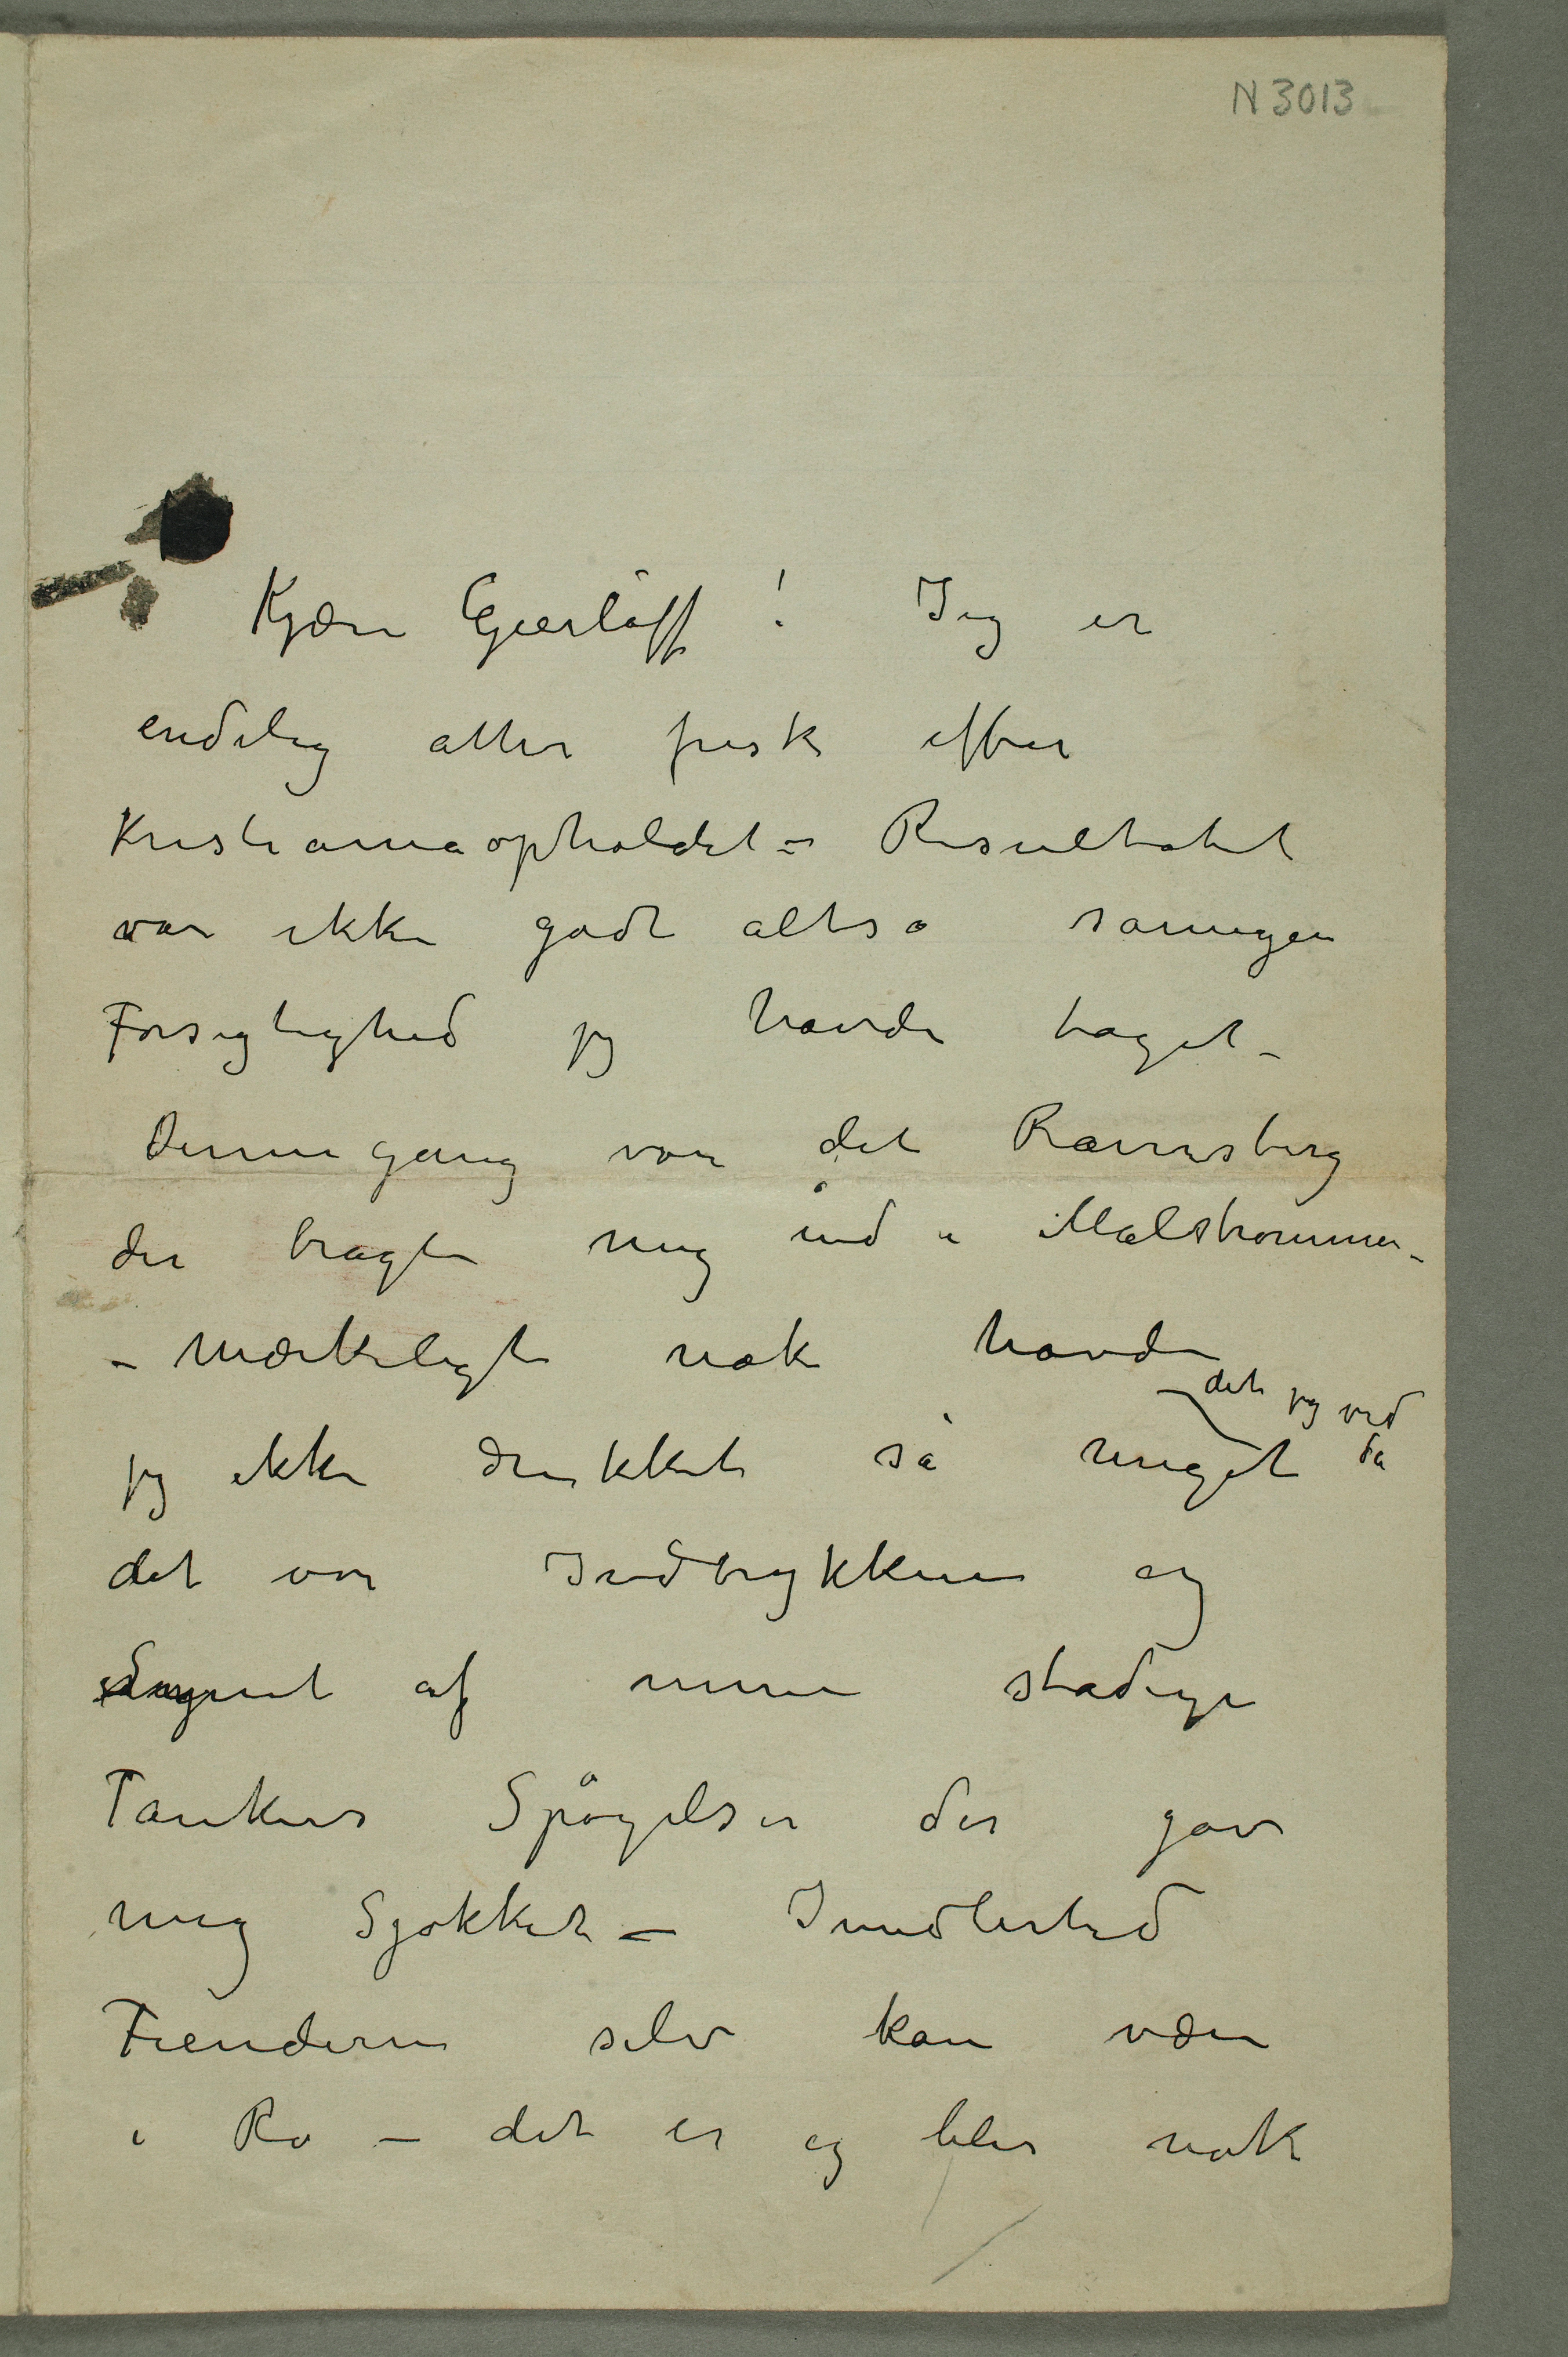 N 3013
Kjære Gierløff! Jeg er
endelig atter frisk efter
Kristianiaopholdet – Resultatet
var ikke godt altså såmegen
Forsigtighed jeg havde taget –
Dennegang var det Ravensberg
der bragte mig ind i Malstrømmen –
– Mærkeligt nok havde
jeg ikke drukket så meget det jeg ved da
det var Indtrykkene og
Synet af mine stadige
Tankers Spøgelser der gav
mig Sjokket – Imidlertid
Fienderne selv kan være
i Ro – det er og blir nok